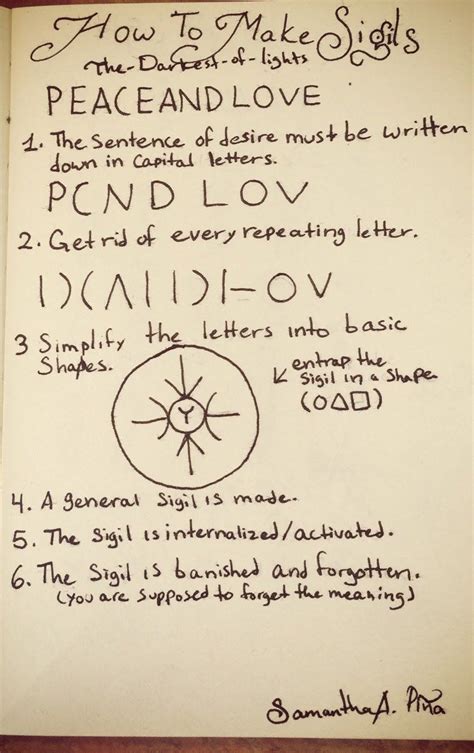 How To Make Sigils
The-Darkest-of-lights
PEACEANDLOVE
1. The Sentence of desire must be written
down in Capital letters.
PCND LOV
2. Get rid of every repeating letter.
|)(/\||)|-OV
3 Simplify the letters into basic
Shapes.
entrap the
Sigil in a Shape
(○△□)
Y
4. A general Sigil is made.
5. The Sigil is internalized/activated.
6. The Sigil is banished and forgotten.
(You are supposed to forget the meaning)
Samantha A. Piña